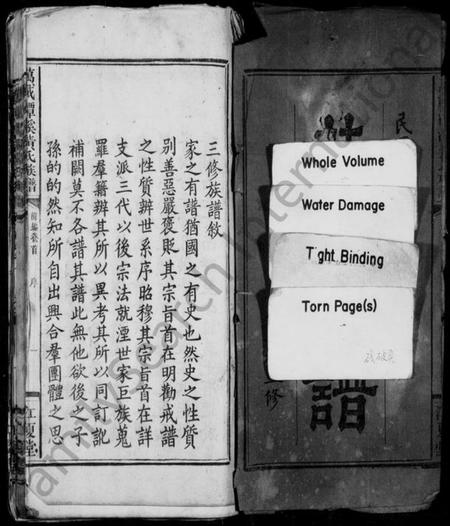 三修族譜敘
家之有譜猶國之有史也然史之性質
別善惡嚴褒貶其宗旨首在明勸戒譜
之性質辨世系序昭穆其宗旨首在詳
支派三代以後宗法就湮世家巨族蒐
羅羣籍辨其所以異考其所以同訂訛
補闕莫不各譜其譜此無他欲後之子
孫的的然知所自出興合羣團體之思
萬載潭溪黃氏族譜
卷首
序
一
江夏堂
民
譜
修
Whole Volume
Water Damage
Tight Binding
Torn Page(s)